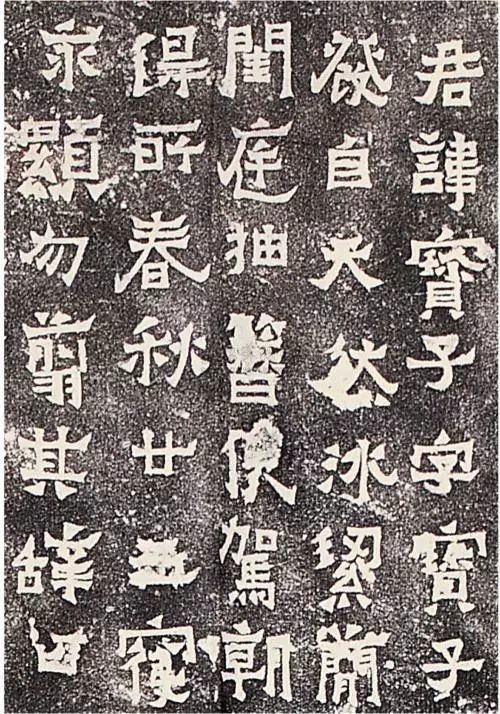 君諱寶子字寶子
發自天然冰絜蕳
閨庭抽簪俟駕朝
得所春秋廿五寢
永顯勿翦其辭曰